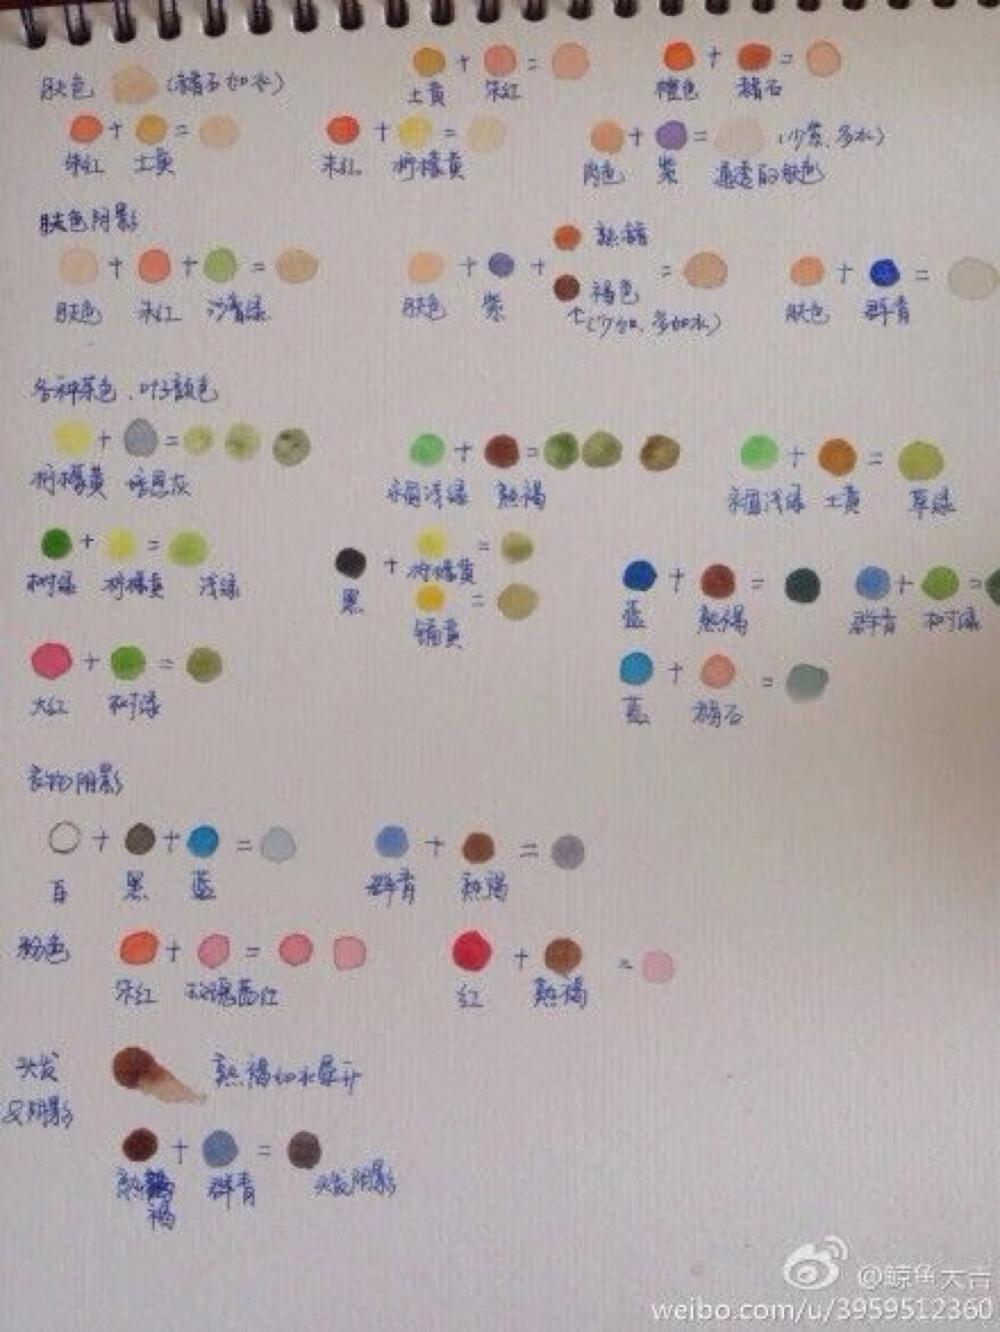 肤色 (赭石加水) + = + =
土黄 朱红 橙色 赭石
+ = + = + = (少紫、多水)
朱红 土黄 朱红 柠檬黄 肉色 紫 通透的肤色
肤色阴影
熟褐
+ + = + + = + =
肤色 朱红 肤色 紫 褐色 肤色 群青
↑(少加、多加水)
各种菜色、叶子颜色
+ = + = + =
柠檬黄 永固浅绿 熟褐 永固浅绿 土黄 草绿
+ = + = + = + =
树绿 柠檬黄 浅绿 黑 柠檬黄 蓝 熟褐 群青 树绿
=
橘黄
+ = + =
大红 树绿 蓝 赭石
衣物阴影
+ + = + =
白 黑 蓝 群青 熟褐
粉色 + = + =
朱红 玫瑰茜红 红 熟褐
头发 熟褐加水晕开
&阴影
+ =
熟 群青 头发阴影
褐
@鲸鱼大吉
weibo.com/u/3959512360